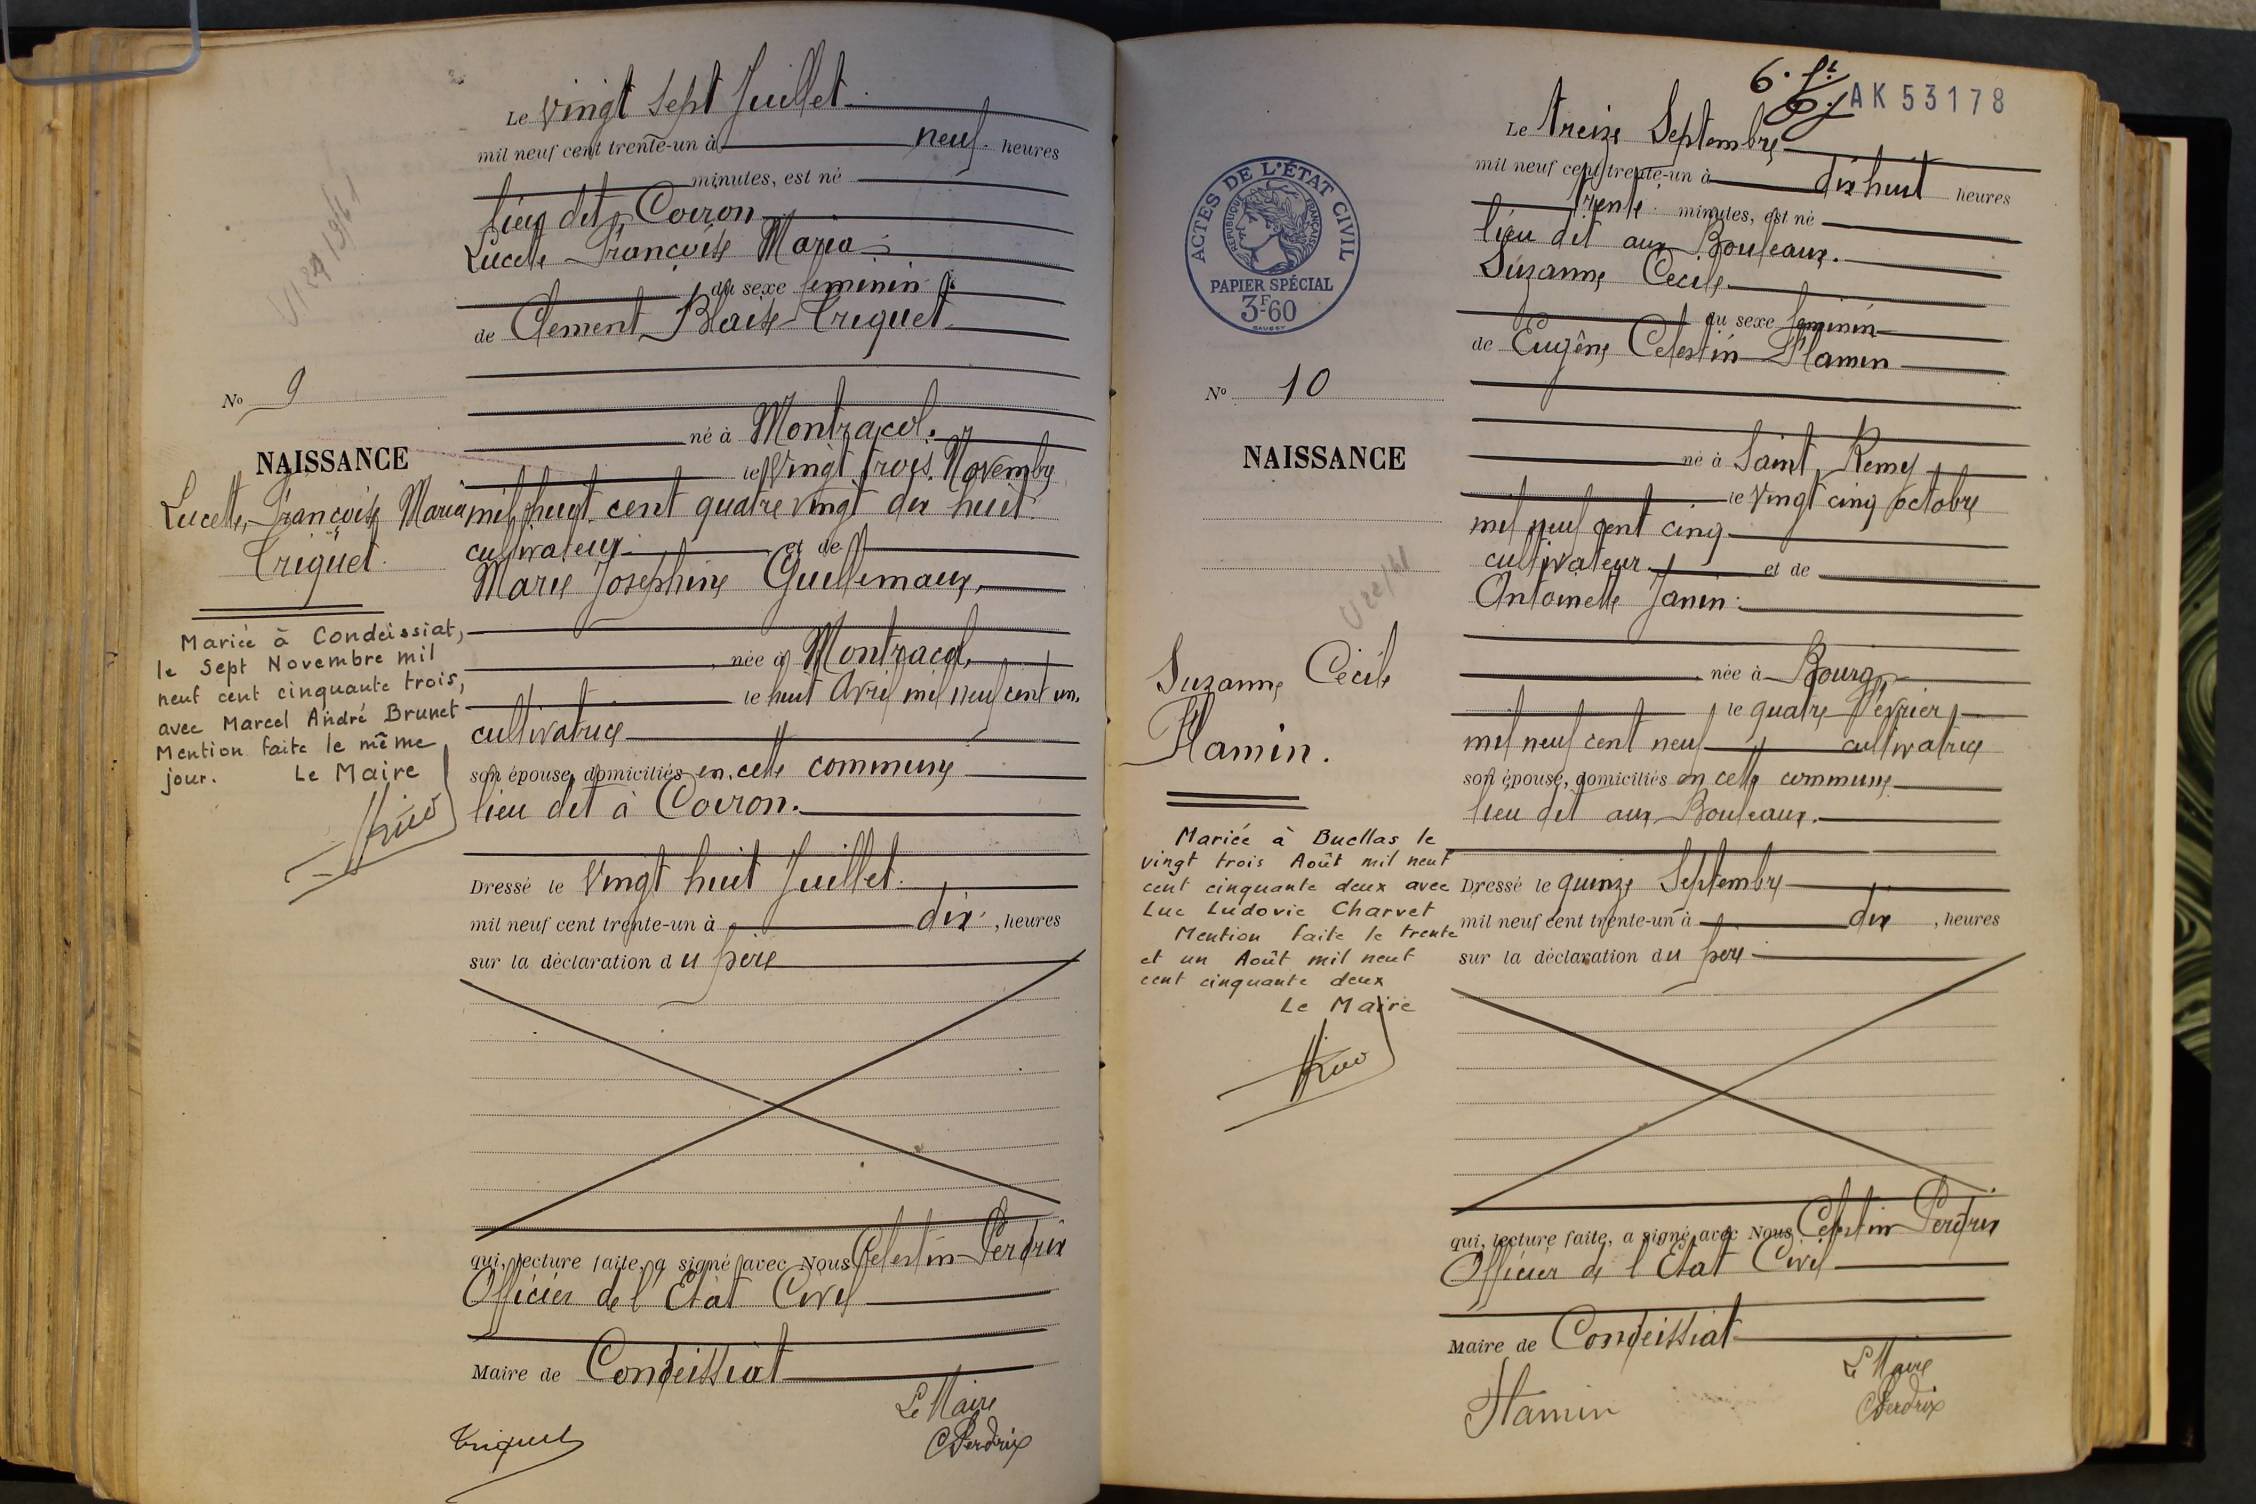 Le vingt sept Juillet
mil neuf cent trente-un à neuf heures
minutes, est né
lieu dit Coiron
Lucette Françoise Maria
du sexe feminin
de Clement Blaise Triquet
né à Montracol.
le Vingt trois Novembre
mil huit cent quatre vingt dix huit
cultivateur et de
Marie Josephine Guillemaux,
née à Montracol,
le huit Avril mil neuf cent un,
cultivatrice
son épouse, domiciliés en cette commune
lieu dit à Coiron.
Dressé le Vingt huit Juillet
mil neuf cent trente-un à dix, heures
sur la déclaration du père
qui, lecture faite, a signé avec Nous Celestin Perdrix
Officier de l'Etat Civil
Maire de Condeissiat
Le Maire
Triquet
CPerdrix
No 9
NAISSANCE
Lucette, Françoise Maria
Triquet
Mariée à Condeissiat,
le Sept Novembre mil
neuf cent cinquante trois,
avec Marcel André Brunet
Mention faite le même
jour. Le Maire
6. ft.
AK 53178
Le treize Septembre
mil neuf cent trente-un à dix huit heures
trente minutes, est né
lieu dit aux Bouleaux.
Suzanne Cecile
du sexe feminin
de Eugène Celestin Flamin
né à Saint Remy
le Vingt cinq octobre
mil neuf cent cinq
cultivateur et de
Antoinette Janin
née à Bourg
le quatre Février
mil neuf cent neuf cultivatrice
son épouse, domiciliés en cette commune
lieu dit aux Bouleaux.
Dressé le quinze Septembre
mil neuf cent trente-un à dix, heures
sur la déclaration du père
qui, lecture faite, a signé avec Nous Celestin Perdrix
Officier de l'Etat Civil
Maire de Condeissiat
Le Maire
Flamin
CPerdrix
ACTES DE L'ÉTAT CIVIL
RÉPUBLIQUE FRANÇAISE
PAPIER SPÉCIAL
3F-60
No 10
NAISSANCE
Suzanne Cécile
Flamin.
Mariée à Buellas le
vingt trois Août mil neuf
cent cinquante deux avec
Luc Ludovic Charvet
Mention faite le trente
et un Août mil neuf
cent cinquante deux
Le Maire